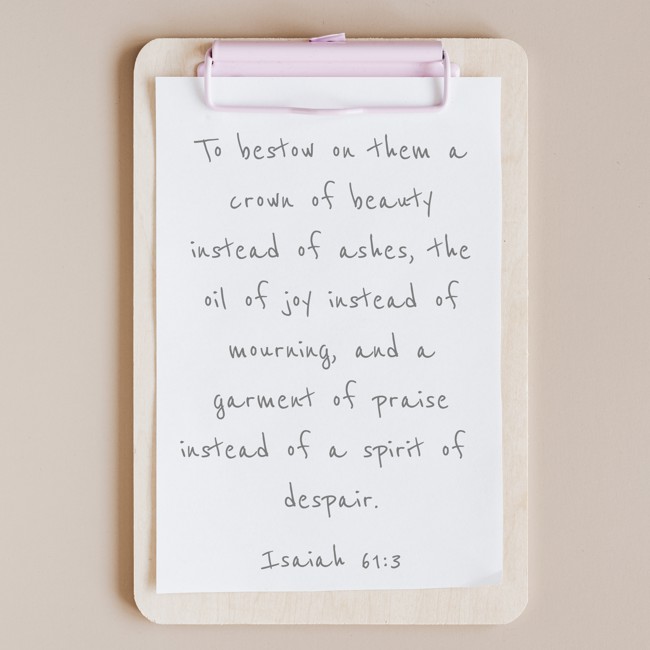 To bestow on them a
crown of beauty
instead of ashes, the
oil of joy instead of
mourning, and a
garment of praise
instead of a spirit of
despair.
Isaiah 61:3